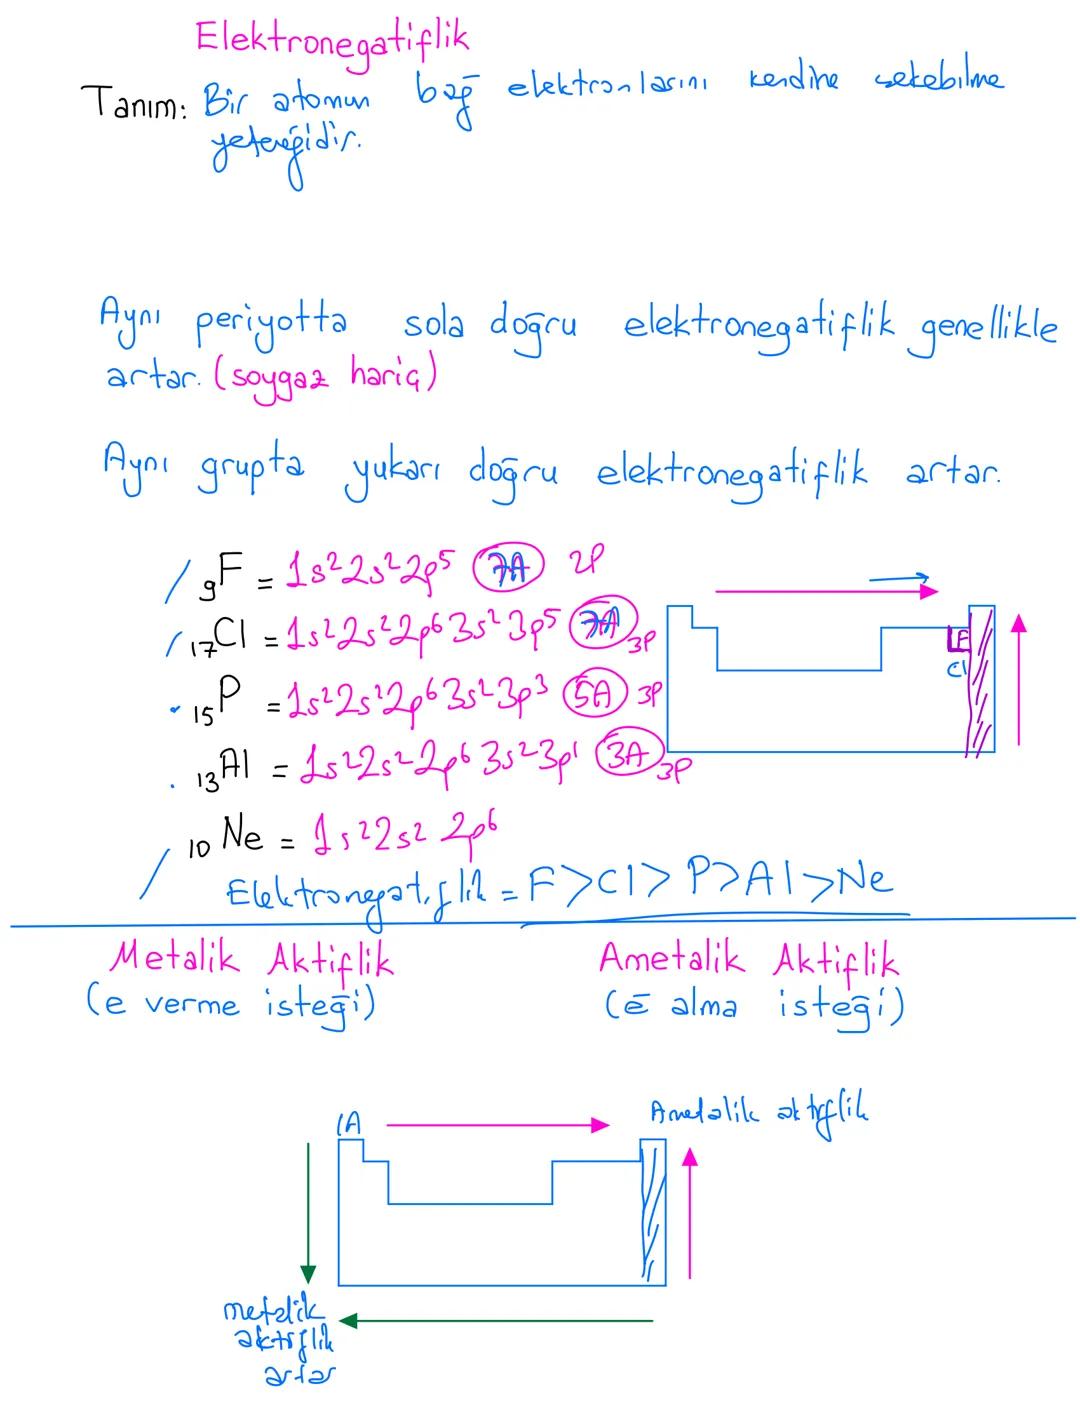 Elektronegatiflik
Tanım: Bir atomun bağ elektronlarını kendine çekebilme
yeteneğidir.
Aynı periyotta sola doğru elektronegatiflik genellikle
artar. (soygaz hariç)
Aynı grupta yukarı doğru elektronegatiflik artar.
₉F = 1s²2s²2p⁵ 7A 2P
₁₇Cl = 1s²2s²2p⁶3s²3p⁵ 7A 3P
F
Cl
₁₅P = 1s²2s²2p⁶3s²3p³ 5A 3P
₁₃Al = 1s²2s²2p⁶3s²3p¹ 3A 3P
₁₀Ne = 1s²2s²2p⁶
Elektronegatiflik = F>Cl>P>Al>Ne
Metalik Aktiflik
(e verme isteği)
Ametalik Aktiflik
(ē alma isteği)
1A
Ametalik aktiflik
metalik
aktiflik
artar